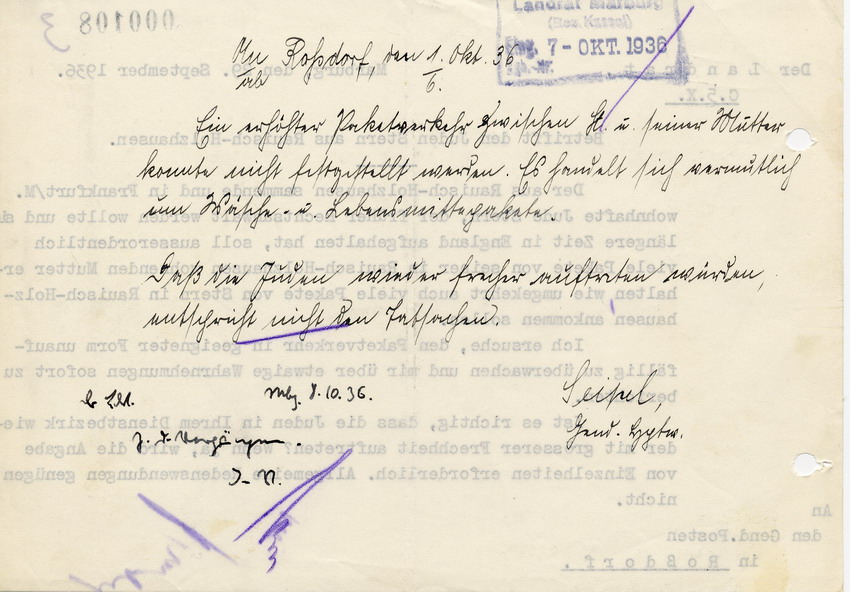 000108
3
Landrat Marburg
(Bez. Kassel)
Eing. 7 - OKT. 1936
Roßdorf, den 1. Okt. 36
Ein erhöhter Paketverkehr zwischen St. u. seiner Mutter
konnte nicht festgestellt werden. Es handelt sich vermutlich
um Wäsche- u. Lebensmittepakete.
Daß die Juden wieder frecher auftreten würden,
entspricht nicht den Tatsachen.
Seipel,
Gend. Hptw.
Mbg. 8.10.36.
Z. d. Vorgängen.
Der Landrat
Marburg, den 29. September 1936.
Betrifft den Juden Stern aus Rauisch-Holzhausen.
Der aus Rauisch-Holzhausen stammende und in Frankfurt/M.
wohnhafte Jude Stern, der früher Rechtsanwalt werden wollte und
längere Zeit in England aufgehalten hat, soll ausserordentlich
viele Pakete von seiner in Rauisch-Holzhausen wohnenden Mutter er-
halten wie umgekehrt auch viele Pakete von Stern in Rauisch-Holz-
hausen ankommen sollen.
Ich ersuche, den Paketverkehr in geeigneter Form unauf-
fällig zu überwachen und mir über etwaige Wahrnehmungen sofort zu
es richtig, dass die Juden in Ihrem Dienstbezirk wie-
der mit grösserer Frechheit auftreten? Wenn ja, wird die Angabe
von Einzelheiten erforderlich. Allgemeine Redewendungen genügen
nicht.
An
den Gend.Posten
in Roßdorf.